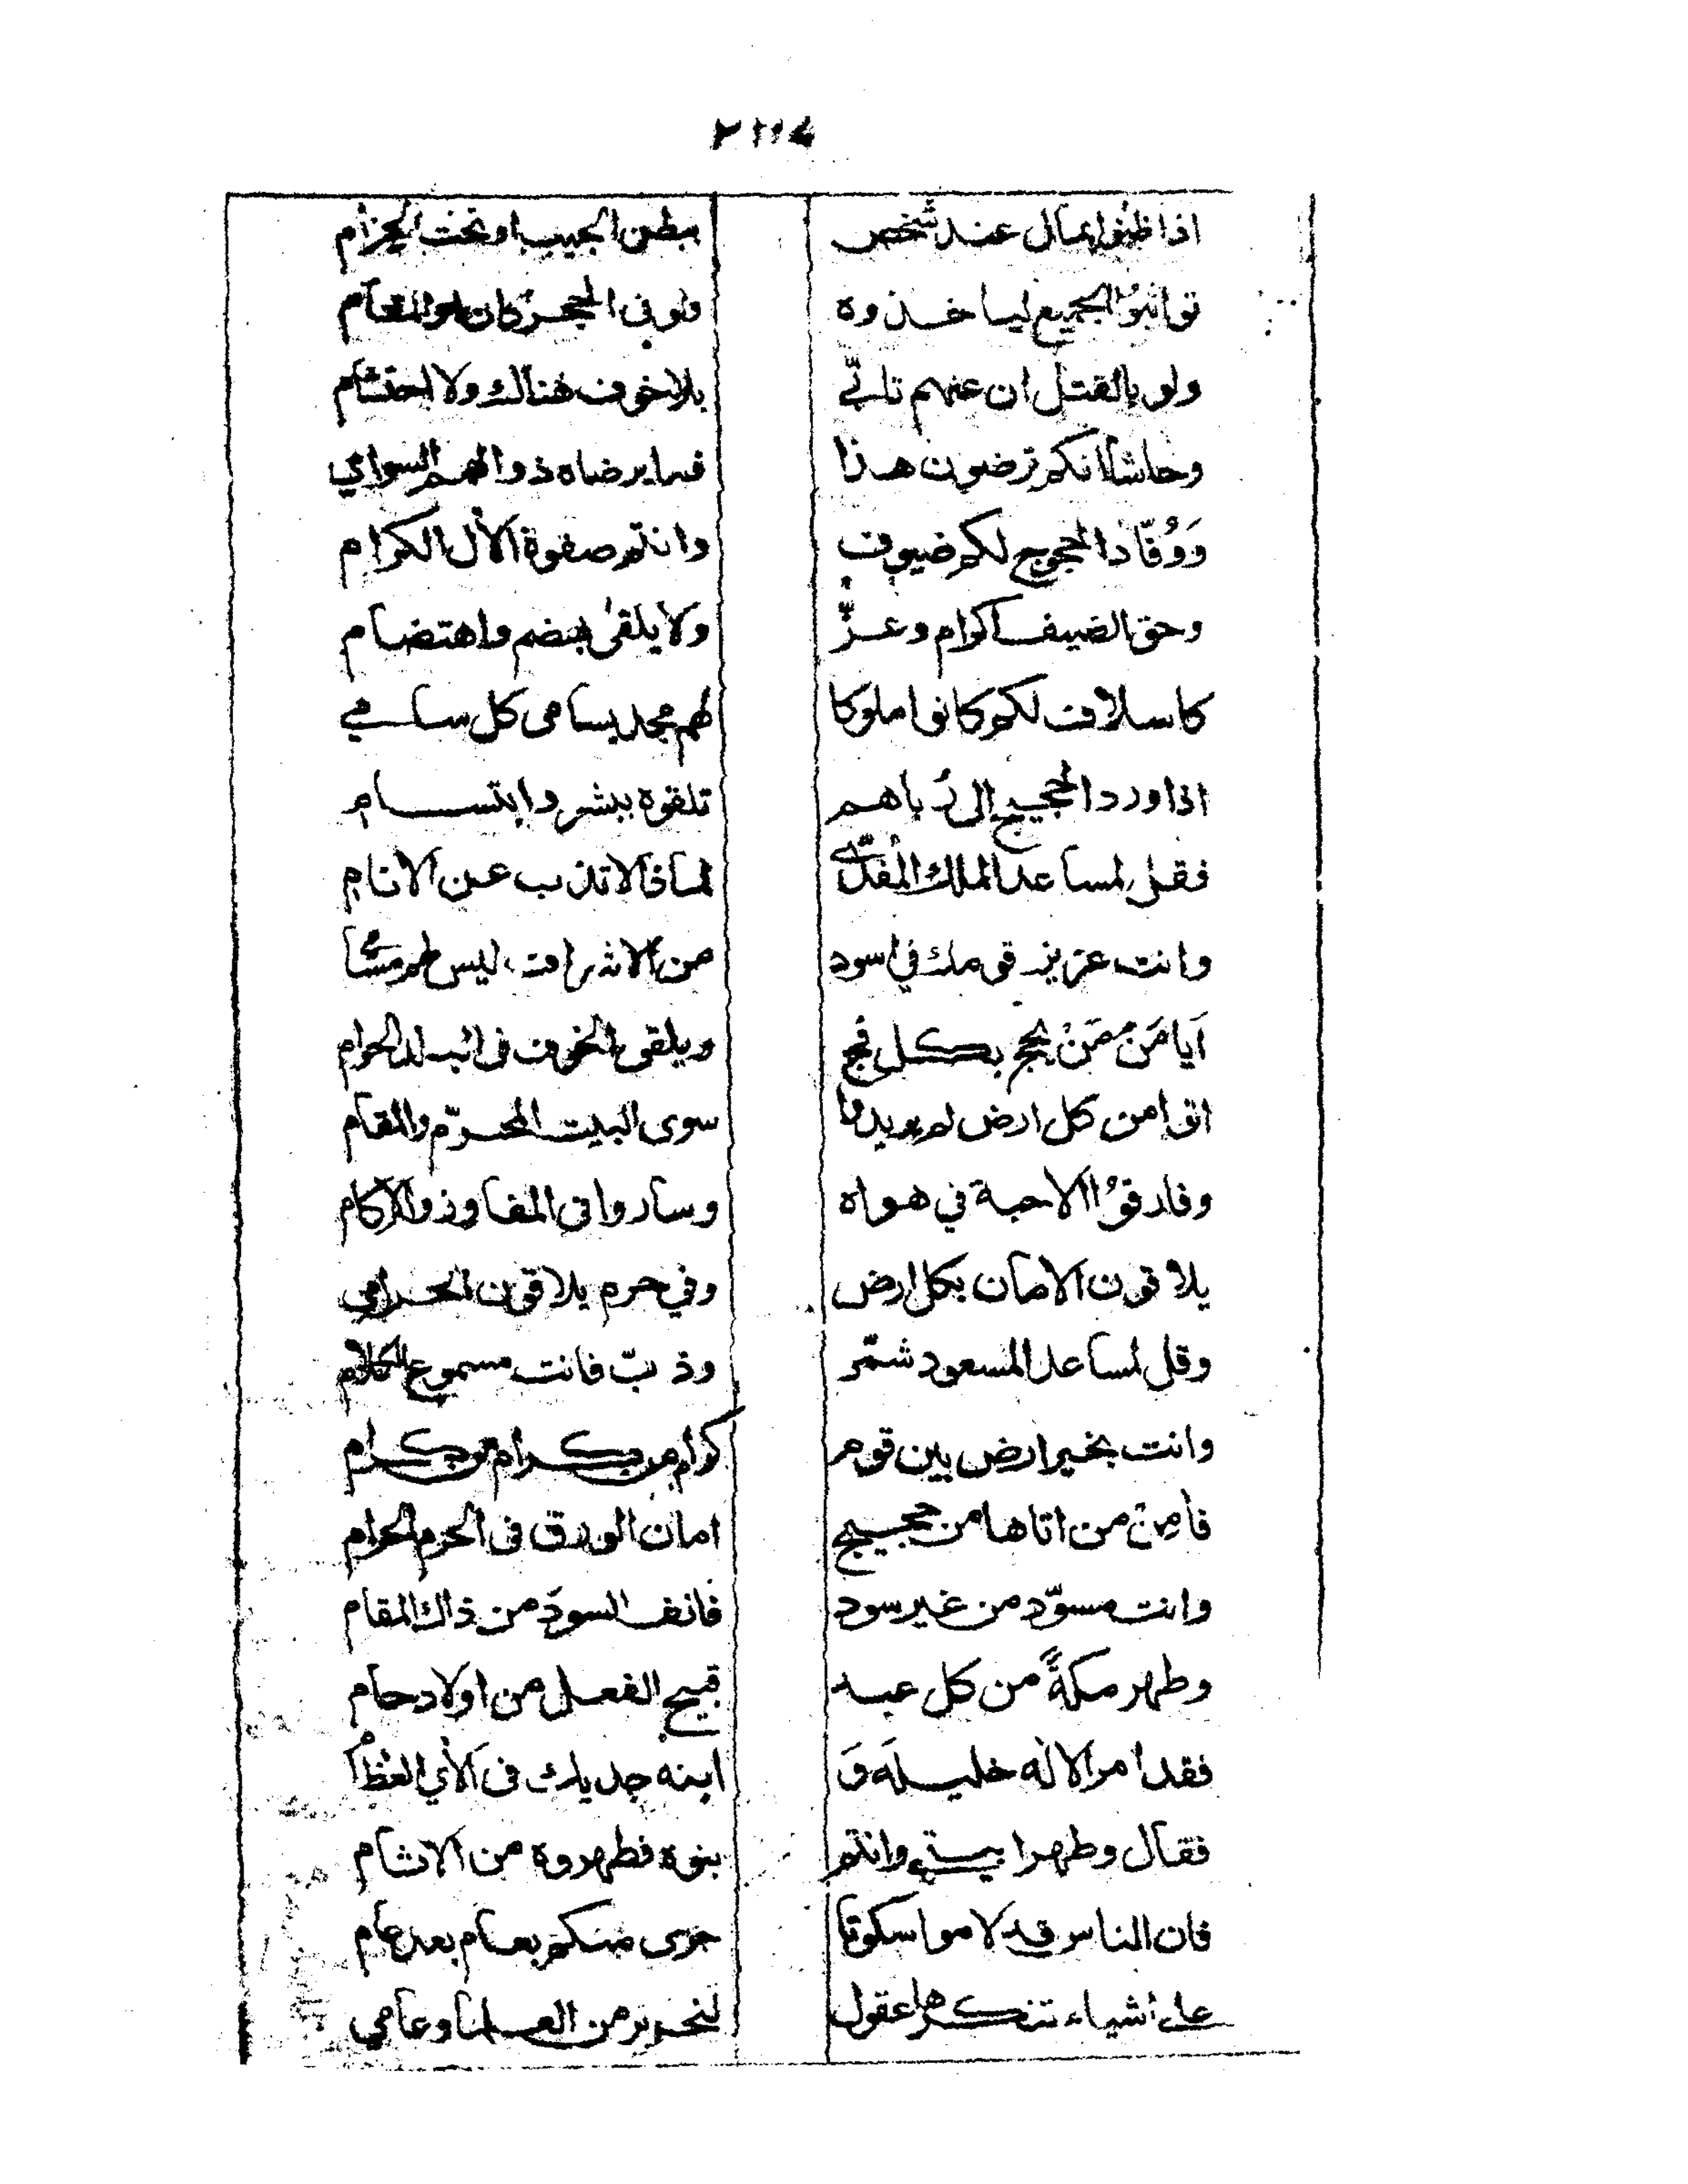 اذا ظنوا بمال عند شخص ببطن الجيب او تحت الحزام
تواثبوُا الجميع ليا خذوه ولو فى الحجر كان او المقام
ولو بالقتل ان عنهم تابّى بلا خوف هنالك ولا احتشام
وحاشا انكم ترضون هذا فما يرضاه ذوالهمم السوامي
وَوُفّادا الحجوج لكم ضيوف وانتم صفوة الأل الكرام
وحق الضيف اكرام وعزٌّ ولا يلقىٰ بهضم واهتضام
كاسلاف لكم كانوا ملوكا لهم مجد يسامى كل سامي
اذا ورد الحجيج الى رُباهم تلقوه ببشر وابتسام
فقل لمساعد الملك المُفدّى لماذا لا تذب عن الانام
وانت عزيز قومك في اسود من الاشراف ليس لهم مسٌامي
اَيا مَنْ مَنْ يحج بكل فج ويلقى الخوف فى البلد الحرام
اتوا من كل ارض لم يريدوا سوى البيت المحرّم والمقام
وفارقوُا الاحبة في هواه وساروا فى المفاوز والاكام
يلاقون الامان بكل ارض وفي حرم يلاقون الحرامي
وقل لمساعد المسعود شمّر وذبّ فانت مسموع الكلام
وانت بخير ارض بين قوم كرام من كرام من كرام
فأمِنْ من اتاها من حجيج امان الورق فى الحرم الحرام
وانت مسوّد من غير سود فانف السودَ من ذاك المقام
وطهر مكةً من كل عبد قبيح الفعل من اولاد حام
فقد امر الالٰه خليلَه وَ ابنه جديك فى الأي العُظام
فقال وطهرا بيتي وانتم بنوه فطهروه من الاثام
فان الناس قد لاموا سكوتا جرى منكم بعام بعد عام
على اشياء تنكرها عقول لنحرير من العلما وعامي